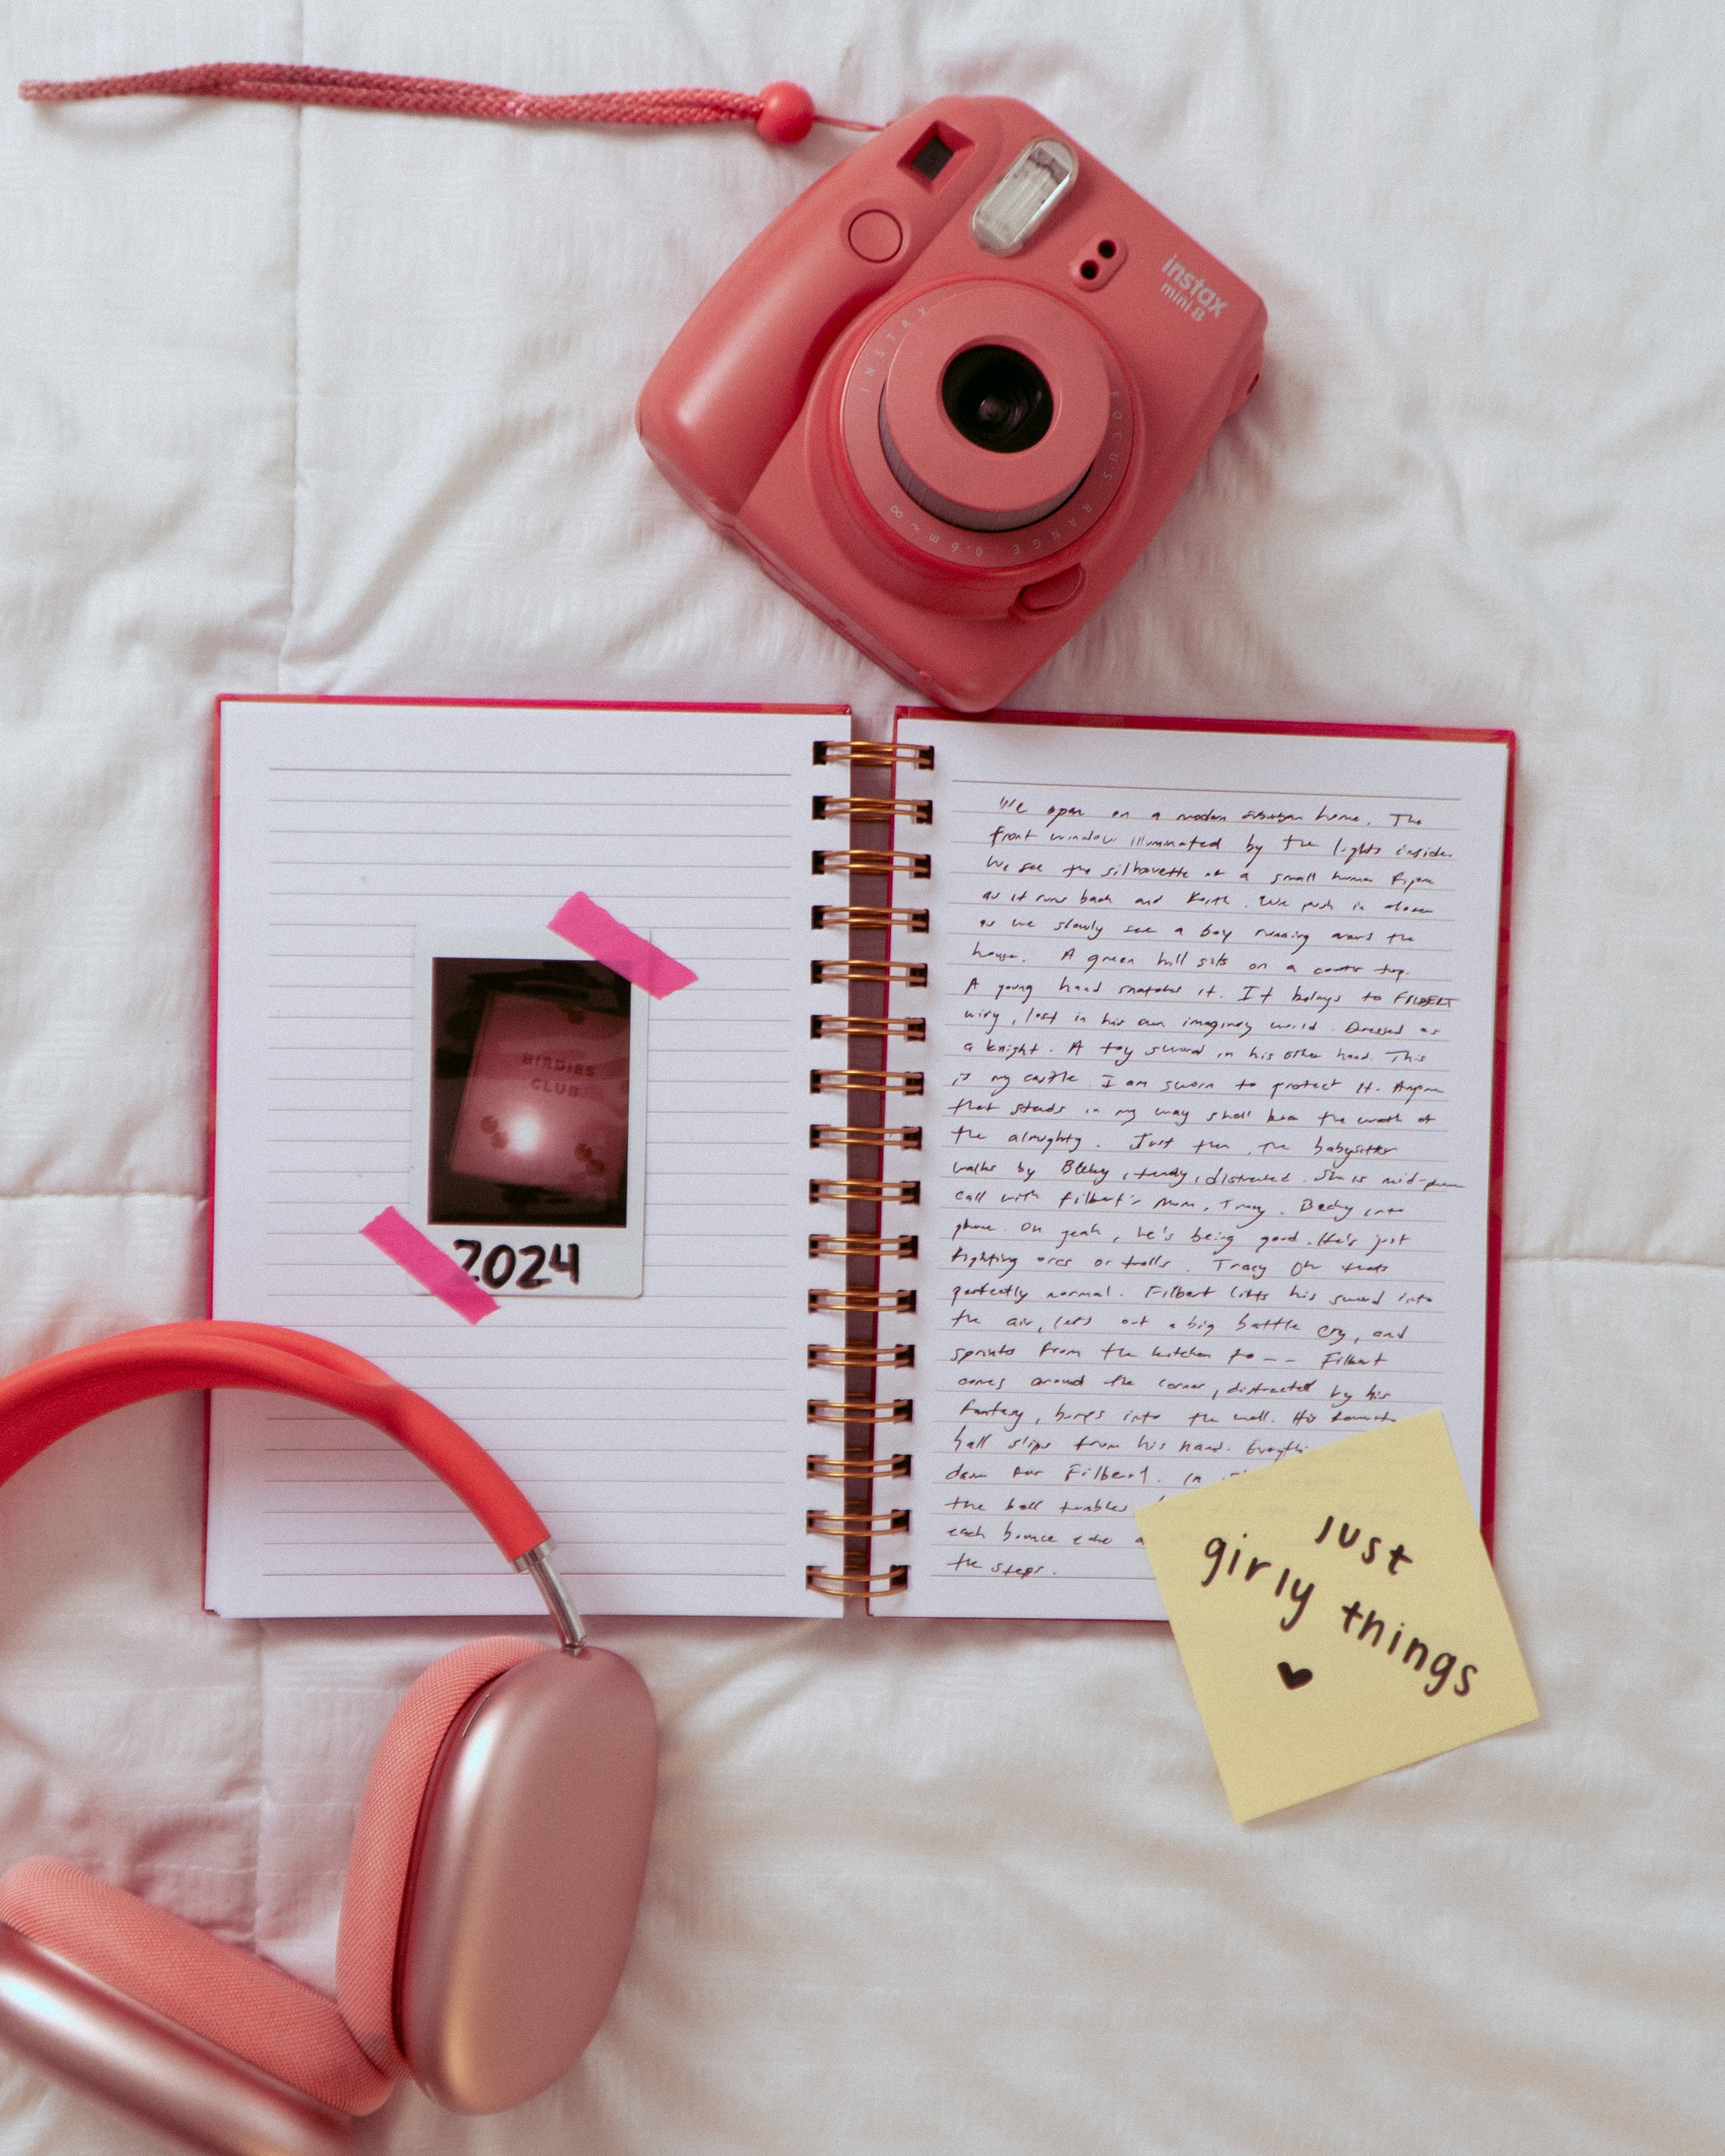 instax
mini 8
INSTAX
FOCUS RANGE 0.6m ~ ∞
We open on a modern suburban home. The
front window illuminated by the lights inside.
We see the silhouette of a small human figure
as it runs back and forth. We push in closer
as we slowly see a boy running around the
house. A green ball sits on a counter top.
A young hand snatches it. It belongs to FILBERT
wiry, lost in his own imaginary world. Dressed as
a knight. A toy sword in his other hand. This
is my castle. I am sworn to protect it. Anyone
that stands in my way shall bear the wrath of
the almighty. Just then, the babysitter
walks by Becky, trendy, distracted. She is mid-phone
call with Filbert's Mom, Tracy. Becky into
phone. Oh yeah, he's being good. He's just
fighting orcs or trolls. Tracy Oh thats
perfectly normal. Filbert lifts his sword into
the air, lets out a big battle cry, and
sprints from the kitchen to -- Filbert
comes around the corner, distracted by his
fantasy, bumps into the wall. His favorite
ball slips from his hand.
down for Filbert. In
the ball tumbles
each bounce
the steps.
BIRDIES
CLUB
2024
just
girly things